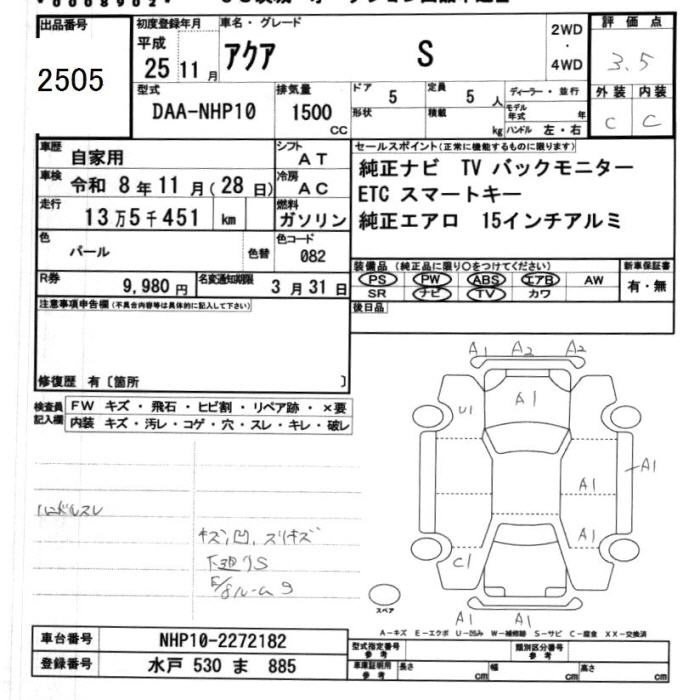 出品番号
2505
初度登録年月
平成
25 11 月
車名・グレード
アクア S
2WD
・
4WD
評価点
3.5
外装 内装
C C
型式
DAA-NHP10
排気量
1500
CC
ドア 5
定員 5 人
形状
積載 kg
ディーラー・並行
モデル年式 年
ハンドル 左・右
車歴
自家用
シフト
AT
車検
令和 8 年 11 月 ( 28 日)
冷房
AC
走行
13 万 5 千 451 km
燃料
ガソリン
色
パール
色替
色コード
082
セールスポイント(正常に機能するものに限ります)
純正ナビ TV バックモニター
ETC スマートキー
純正エアロ 15インチアルミ
装備品 (純正品に限り○をつけてください)
PS PW ABS エアB AW
SR ナビ TV カワ
新車保証書
有・無
後日品
R券
9,980 円
名変通知期限
3 月 31 日
注意事項申告欄 (不具合内容等は具体的に記入して下さい)
修復歴 有〔箇所 〕
検査員記入欄
FW キズ・飛石・ヒビ割・リペア跡・×要
内装 キズ・汚レ・コゲ・穴・スレ・キレ・破レ
ハンドルスレ
キズ、凹、スリキズ
下廻りS
A1 A2 A2
U1
A1
A1
A1
A1
C1
A1 A1
スペア
A-キズ E-エクボ U-凹み W-補修跡 S-サビ C-腐食 XX-交換済
車台番号
NHP10-2272182
登録番号
水戸 530 ま 885
型式指定番号
参考
類別区分番号
参考
車庫証明用
参考
長さ cm
幅 cm
高さ cm